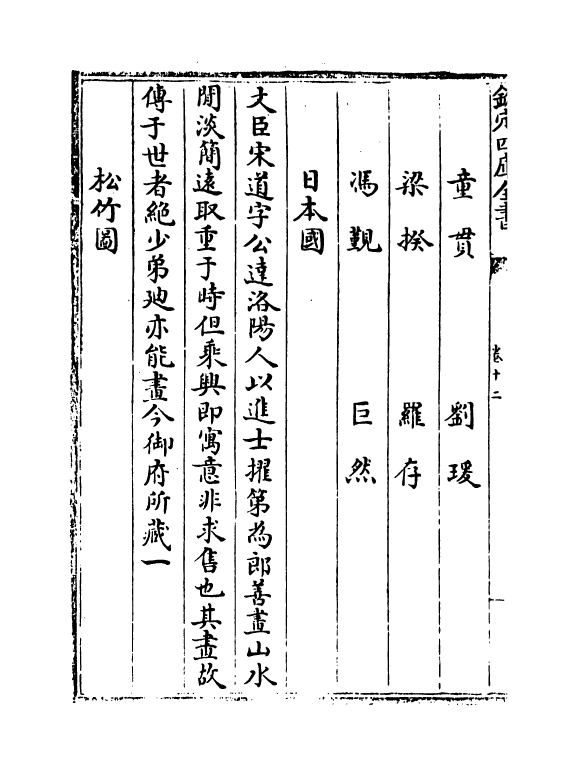 欽定四庫全書
卷十二
童貫 劉瑗
梁揆 羅存
馮覲 巨然
日本國
大臣宋道字公達洛陽人以進士擢第為郎善畫山水
閒淡簡遠取重于時但乘興即寓意非求售也其畫故
傳于世者絶少弟廸亦能畫今御府所藏一
松竹圖